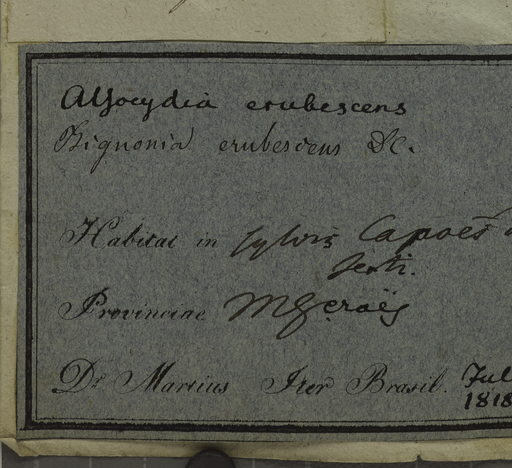 Alsocydia erubescens
Bignonia erubescens DC.
Habitat in sylvis Capoes
Serti.
Provinciae M Geraës
Dr Martius Iter Brasil. Jul
1818